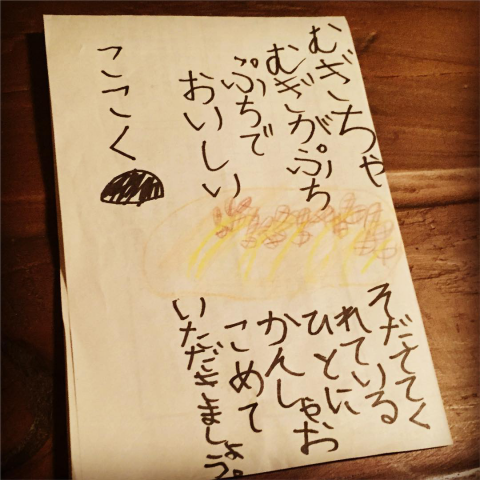 むぎちゃ
むぎがぷち
ぷちで
おいしい
そだててく
れている
ひとに
かんしゃお
こめて
いただきましょう。
ここく